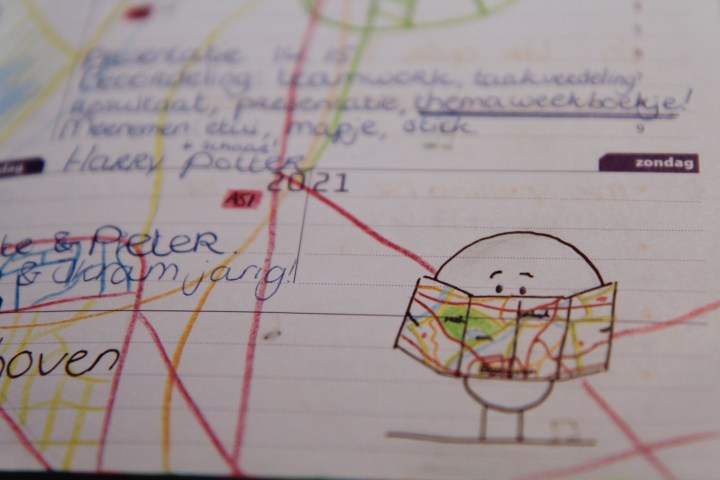 presentatie 14 15
Beoordeling: teamwork, taakverdeling
resultaat, presentatie, themaweekboekje!
Meenemen: etui, mapje, stick
9
Harry Potter
zondag
dag
20 21
A57
te & Peter
& Juram jarig!
hoven